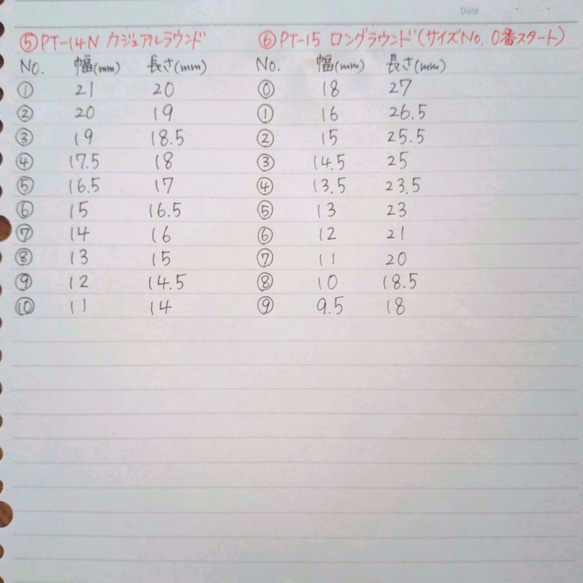 Date
⑤PT-14N カジュアルラウンド ⑥PT-15 ロングラウンド(サイズNo. 0番スタート)
No. 幅(mm) 長さ(mm) No. 幅(mm) 長さ(mm)
① 21 20 ⓪ 18 27
② 20 19 ① 16 26.5
③ 19 18.5 ② 15 25.5
④ 17.5 18 ③ 14.5 25
⑤ 16.5 17 ④ 13.5 23.5
⑥ 15 16.5 ⑤ 13 23
⑦ 14 16 ⑥ 12 21
⑧ 13 15 ⑦ 11 20
⑨ 12 14.5 ⑧ 10 18.5
⑩ 11 14 ⑨ 9.5 18